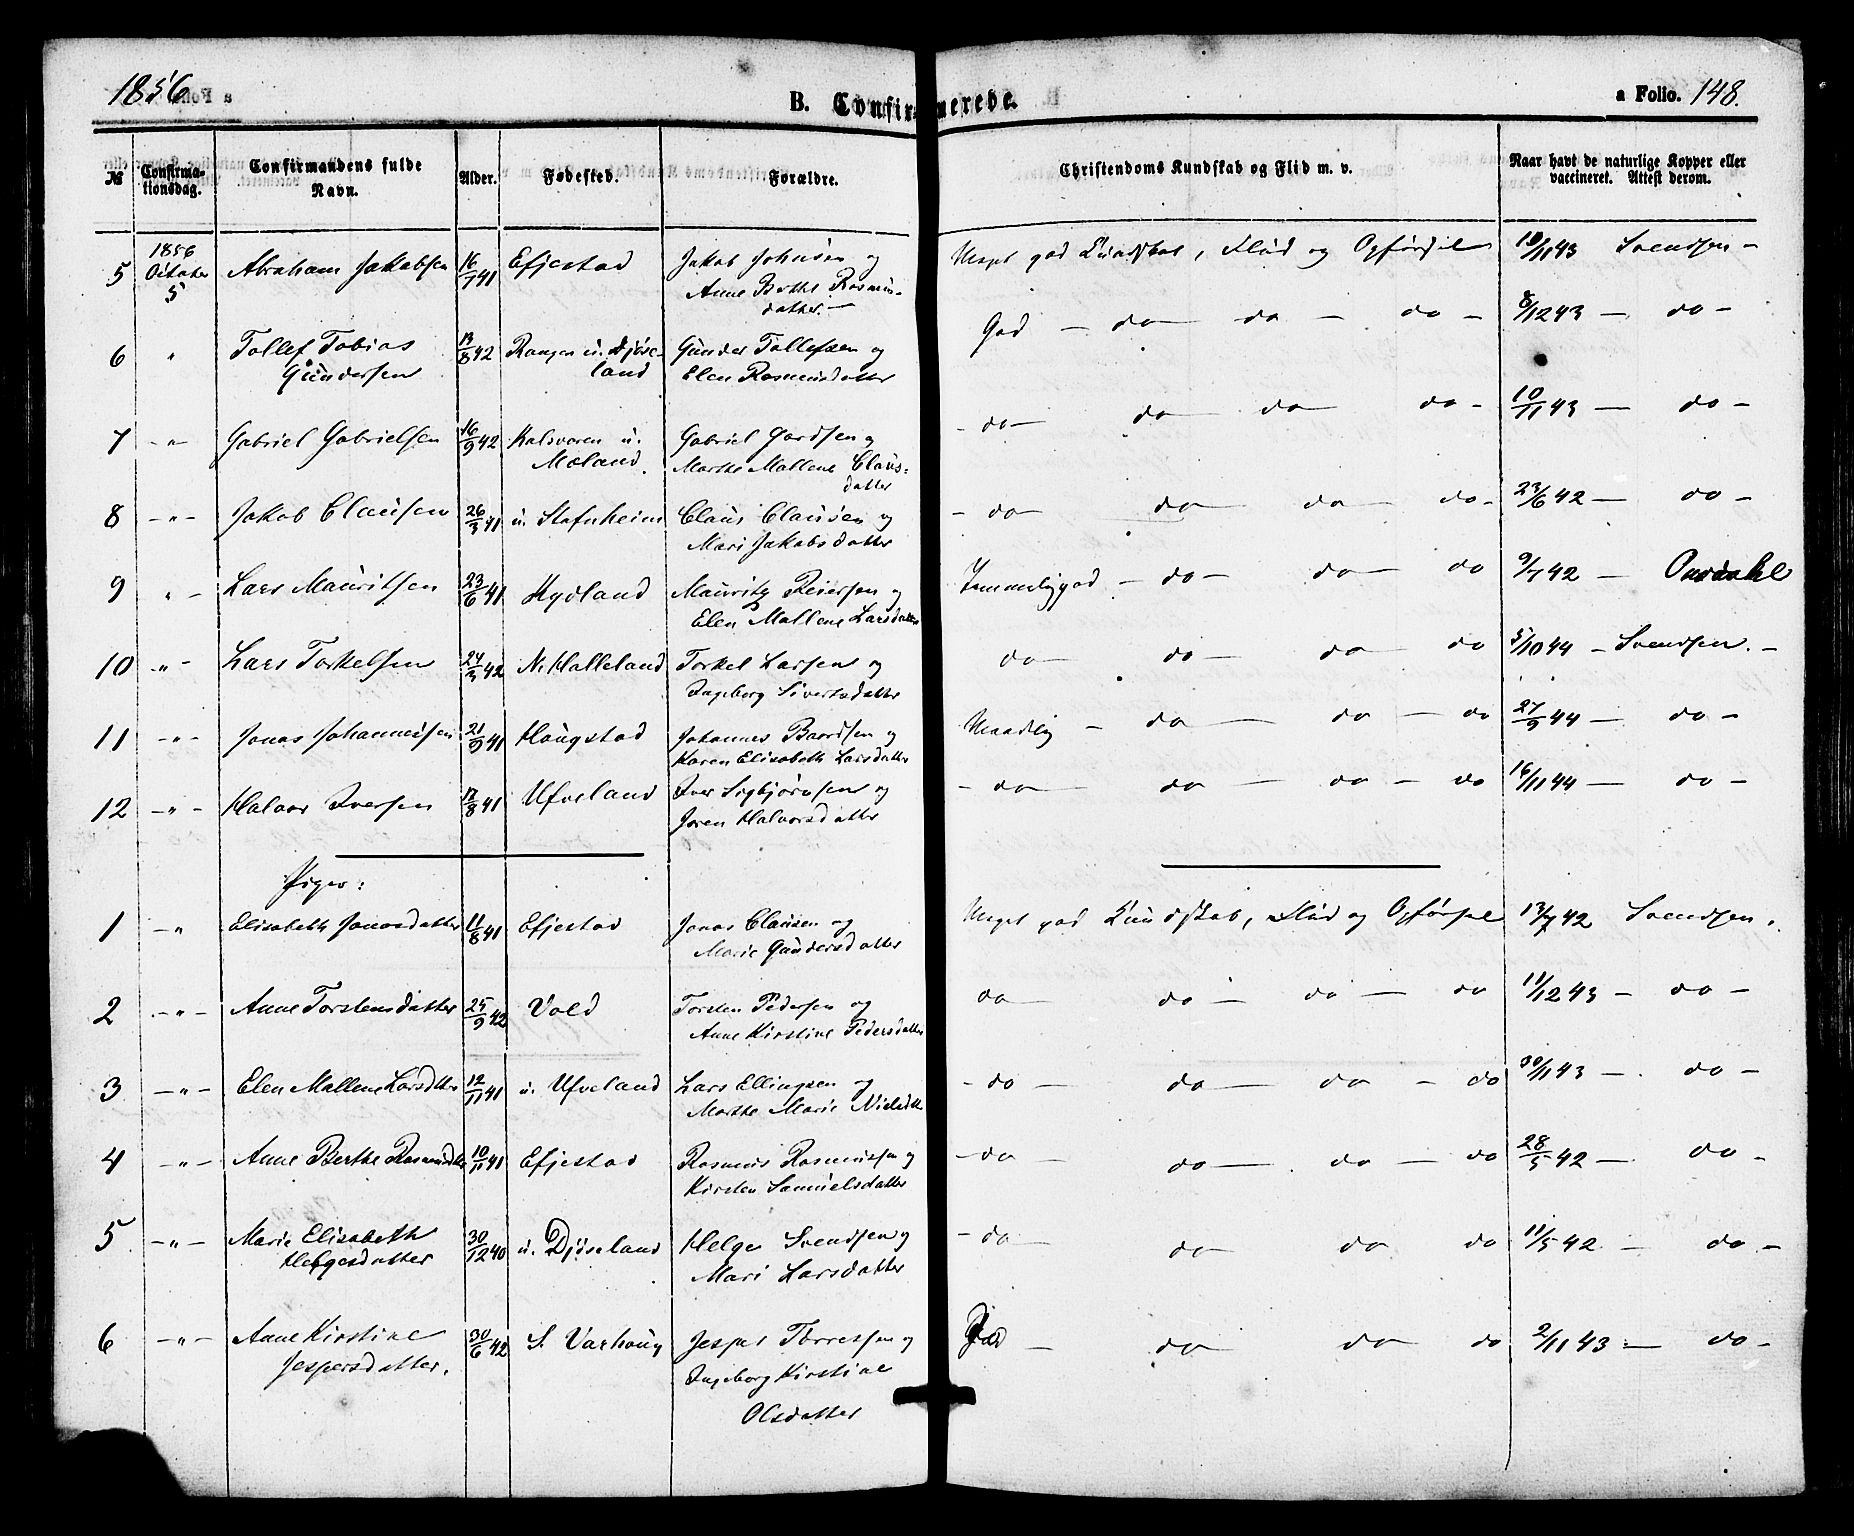 1856
B. Confirmerede.
a Folio. 148.
№ Confirmationsdag. Confirmandens fulde Navn. Alder. Fødested. Forældre. Christendoms Kundskab og Flid m. v. Naar havt de naturlige Kopper eller vaccineret. Attest derom.
5 1856 October 5 Abraham Jakobsen 16/7 41 Efjestad Jakob Johnsen og Meget god Kundskab, Flid og Opførsel 10/11 43 Svendsen -
Anne Berthe Rasmus-
datter. -
6 " Tollef Tobias 13/8 42 Rangen u. Djøse- Gunder Tollefsen og God - do - do - do - 8/12 43 - do -
Gundersen land Elen Rasmusdatter
7 - " Gabriel Gabrielsen 16/9 42 u. Gabriel Gordsen og - do - do - do - do - 10/11 43 - do -
Mæland. Marthe Mallene Claus-
datter
8 - " - Jakob Clausen 26/3 41 u. Stafnheim Claus Clausen og - do - do - do - do - 23/6 42 - do -
Mari Jakobsdatter
9 " - Lars Mauritsen 23/6 41 Hydland Mauritz Reiersen og Temmeliggod - do - do - do 9/7 42 -
Elen Mallene Larsdatter
10 - " - Lars Torkelsen 24/3 42 N. Halleland Torkel Larsen og do - do - do - do 5/10 44 - Svendsen. -
Ingeborg Sivertsdatter
11 - " - Jonas Johannessen 21/9 41 Haugstad Johannes Baardsen og Maadelig - do - do - do 27/9 44 - do -
Karen Elisabeth Larsdatter
12 - " - Halvor Iversen 17/8 41 Ufveland Iver Sigbjørnsen og - do - do - do - do 16/11 44 - do -
Joren Halvorsdatter
Piger:
1 - " Elisabeth Jonasdatter 11/8 41 Efjestad Jonas Clausen og Meget god Kundskab, Flid og Opførsel 13/7 42 Svendsen.
Marie Gundersdatter
2 - " - Anne Torstensdatter 25/9 42 Vold Torsten Pedersen og do - do - do - do 11/12 43 - do -
Anne Kirstine Pedersdatter
3 - " - Elen Mallene Larsdtter 12/11 41 u. Ufveland Lars Ellingsen og - do - do - do - do 30/11 43 - do -
Marthe Marie Nielsdtt
4 - " - Anne Berthe Rasmusdtter 10/11 41 Efjestad Rasmus Rasmussen og - do - do - do - do 28/5 42 - do -
Kirsten Samuelsdatter
5 - " - Marie Elisabeth 30/12 40 u. Djøseland Helge Svendsen og - do - do do do 11/5 42 - do -
Helgesdatter Mari Larsdatter
6 - " - Anne Kirstine 30/6 42 S. Varhoug Jesper Torresen og God - do do do 2/11 43 - do -
Jespersdatter. Ingeborg Kirstine
Olsdatter